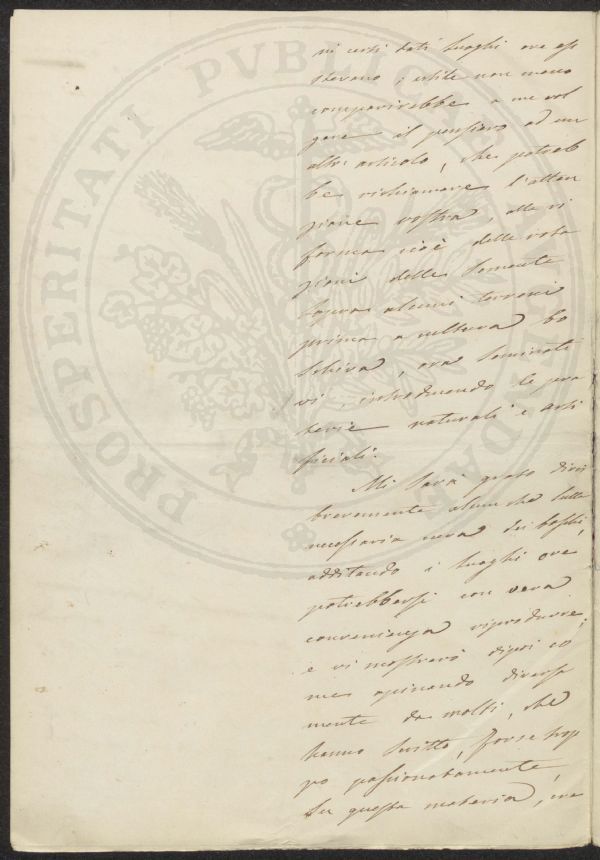 PROSPERITATI PUBLICAE AUGENDAE
ni certi dati luoghi ove esi
stevano; utile non meno
comparirebbe a me vol
gere il pensiero ad un
altro articolo, che potreb
be richiamare l'atten
zione vostra, alla ri
forma cioè delle rota
zioni delle semente
sopra alcuni terreni
prima a cultura bo
schiva, ora seminati
vi, introducendo le pra
terie naturali e arti
ficiali.
Mi sarà grato dirvi
brevemente alcunchè sulla
necessaria cura dei boschi,
additando i luoghi ove
potrebbersi con vera
convenienza riprodurre;
e vi mostrerò dipoi co
me opinando diversa
mente da molti, che
hanno scritto, forse trop
po passionatamente,
su questa materia,